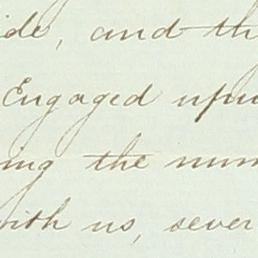 ide, and th
Engaged upon
ing the num
with us, sever